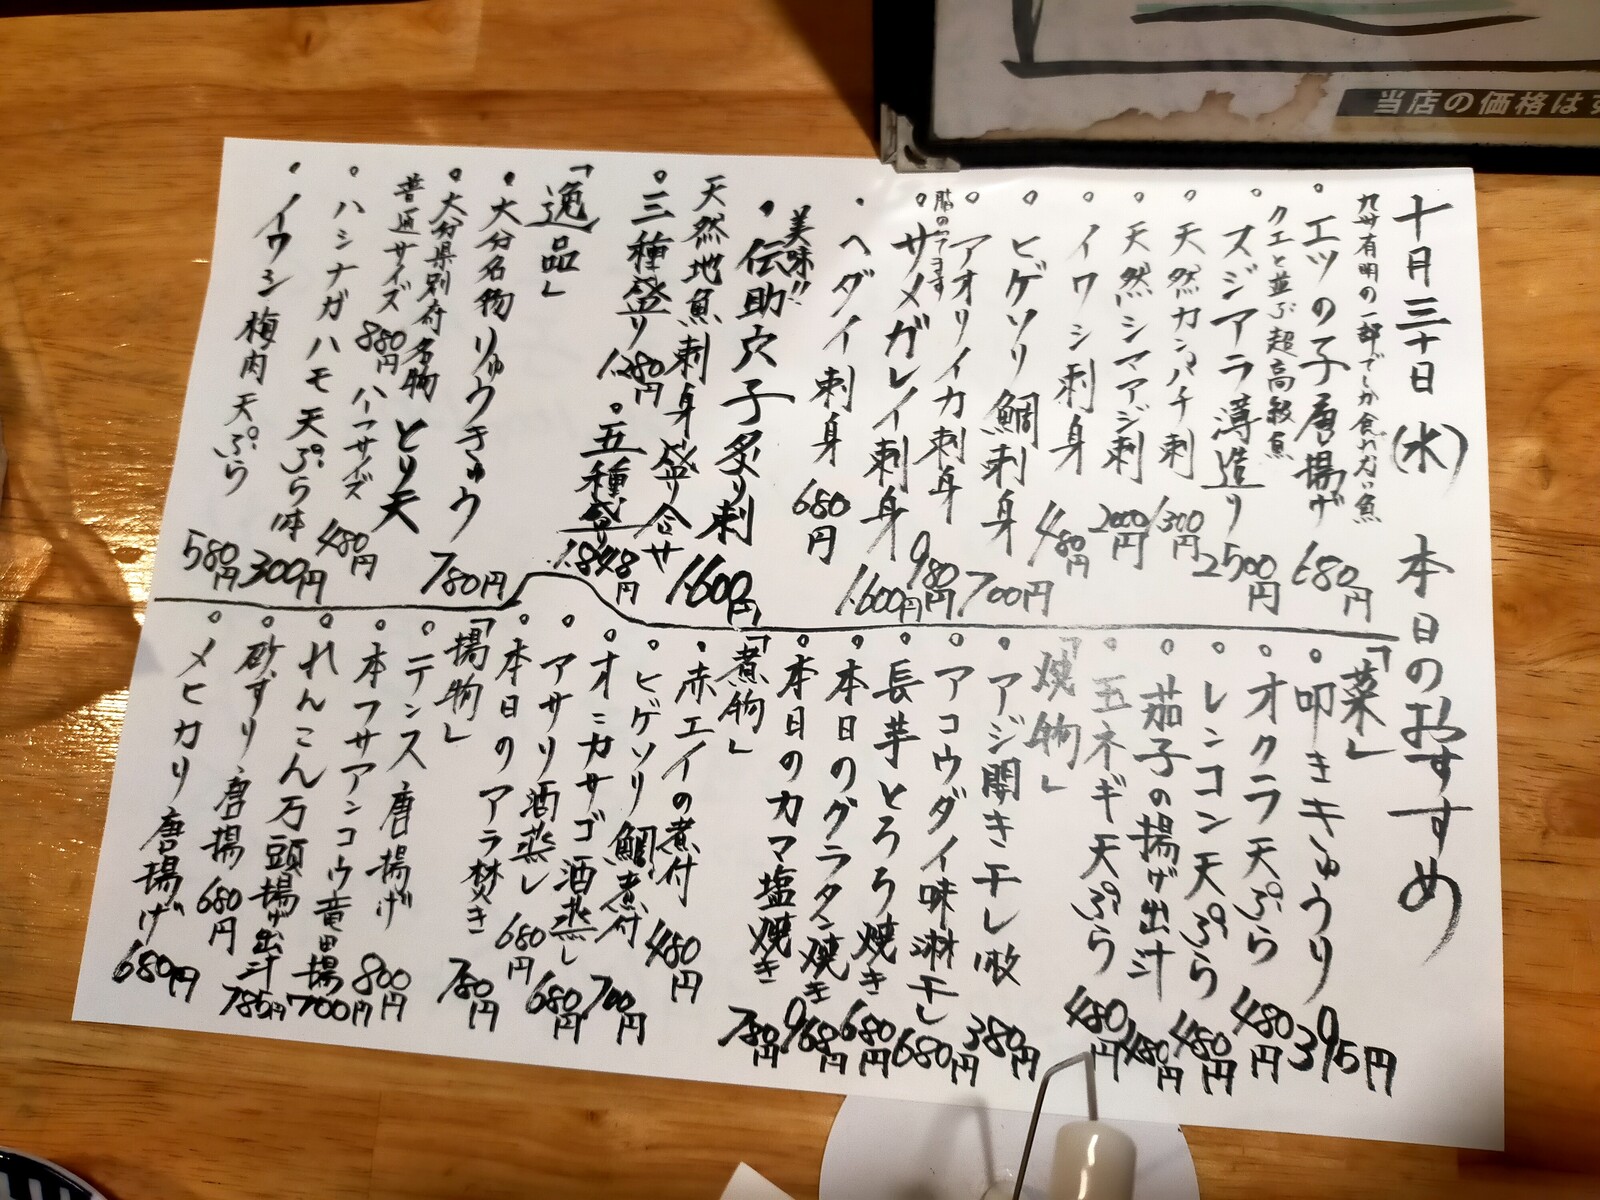 当店の価格はす
十月三十日(水) 本日のおすすめ
九州有明の一部でしか食れない魚
・エツの子唐揚げ 680円
クエと並ぶ超高級魚
・スジアラ薄造り 2500円
・天然カンパチ刺 1300円
・天然シマアジ刺 2000円
・イワシ刺身 480円
・ヒゲソリ鯛刺身 700円
・アオリイカ刺身 980円
脂のってます
・サメガレイ刺身 1.600円
・ヘダイ刺身 680円
美味!!
・伝助穴子炙り刺 1.600円
天然地魚刺身盛り合せ
・三種盛り 1.280円 ・五種盛り 1.848円
「逸品」
・大分名物りゅうきゅう 780円
・大分県別府名物 とり天
普通サイズ 880円 ハーフサイズ 480円
・ハシナガハモ天ぷら1本 300円
・イワシ梅肉天ぷら 580円
「菜」
・叩ききゅうり 395円
・オクラ天ぷら 480円
・レンコン天ぷら 480円
・茄子の揚げ出汁 480円
・玉ネギ天ぷら 480円
「焼物」
・アジ開き干し1枚 380円
・アコウダイ味淋干し 680円
・長芋とろろ焼き 680円
・本日のグラタン焼き 968円
・本日のカマ塩焼き 780円
「煮物」
・赤エイの煮付 480円
・ヒゲソリ鯛煮付 700円
・オニカサゴ酒蒸し 680円
・アサリ酒蒸し 680円
・本日のアラ焚き 780円
「揚物」
・テンス唐揚げ 800円
・本フサアンコウ竜田揚 700円
・れんこん万頭揚げ出汁 785円
・砂ずり唐揚 680円
・メヒカリ唐揚げ 680円